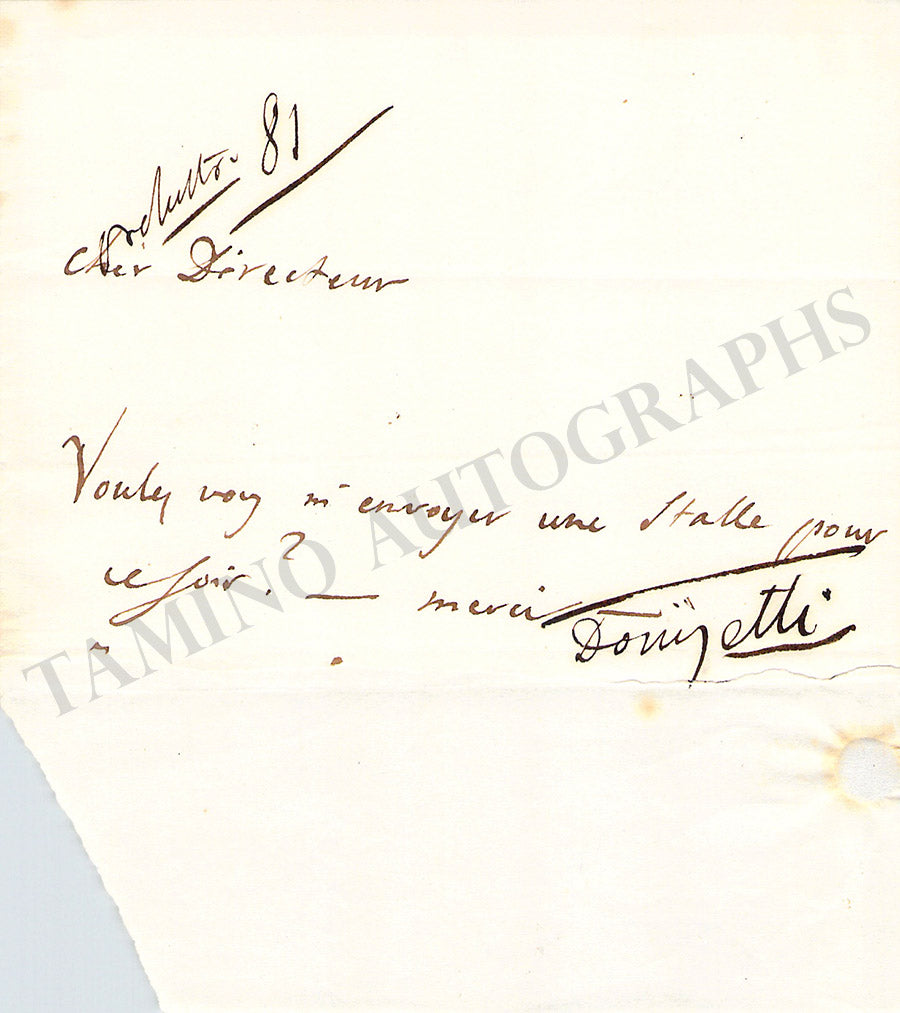 81
Cher Directeur
Voulez vous m'envoyer une Stalle pour
ce soir? — merci
Donizetti
TAMINO AUTOGRAPHS